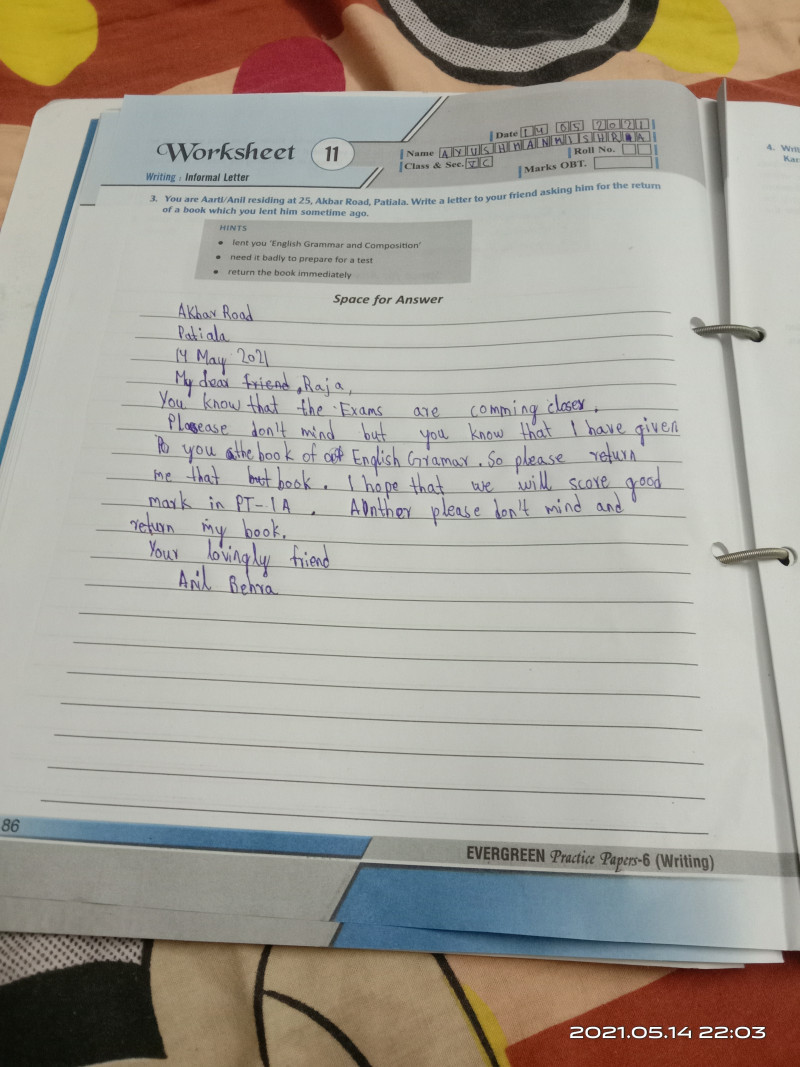 Worksheet 11
Writing : Informal Letter
Date 14 05 2021
Name AYUSHMAN MISHRA
Roll No.
Class & Sec. VI C
Marks OBT.
3. You are Aarti/Anil residing at 25, Akbar Road, Patiala. Write a letter to your friend asking him for the return
of a book which you lent him sometime ago.
HINTS
• lent you 'English Grammar and Composition'
• need it badly to prepare for a test
• return the book immediately
Space for Answer
Akbar Road
Patiala
14 May 2021
My dear friend, Raja,
You know that the Exams are comming closer.
Please don't mind but you know that I have given
to you the book of English Gramar. So please return
me that book. I hope that we will score good
mark in PT-1A. please don't mind and
return my book.
Your lovingly friend
Anil Behra
86
EVERGREEN Practice Papers-6 (Writing)
4. Writ
Kar
2021.05.14 22:03